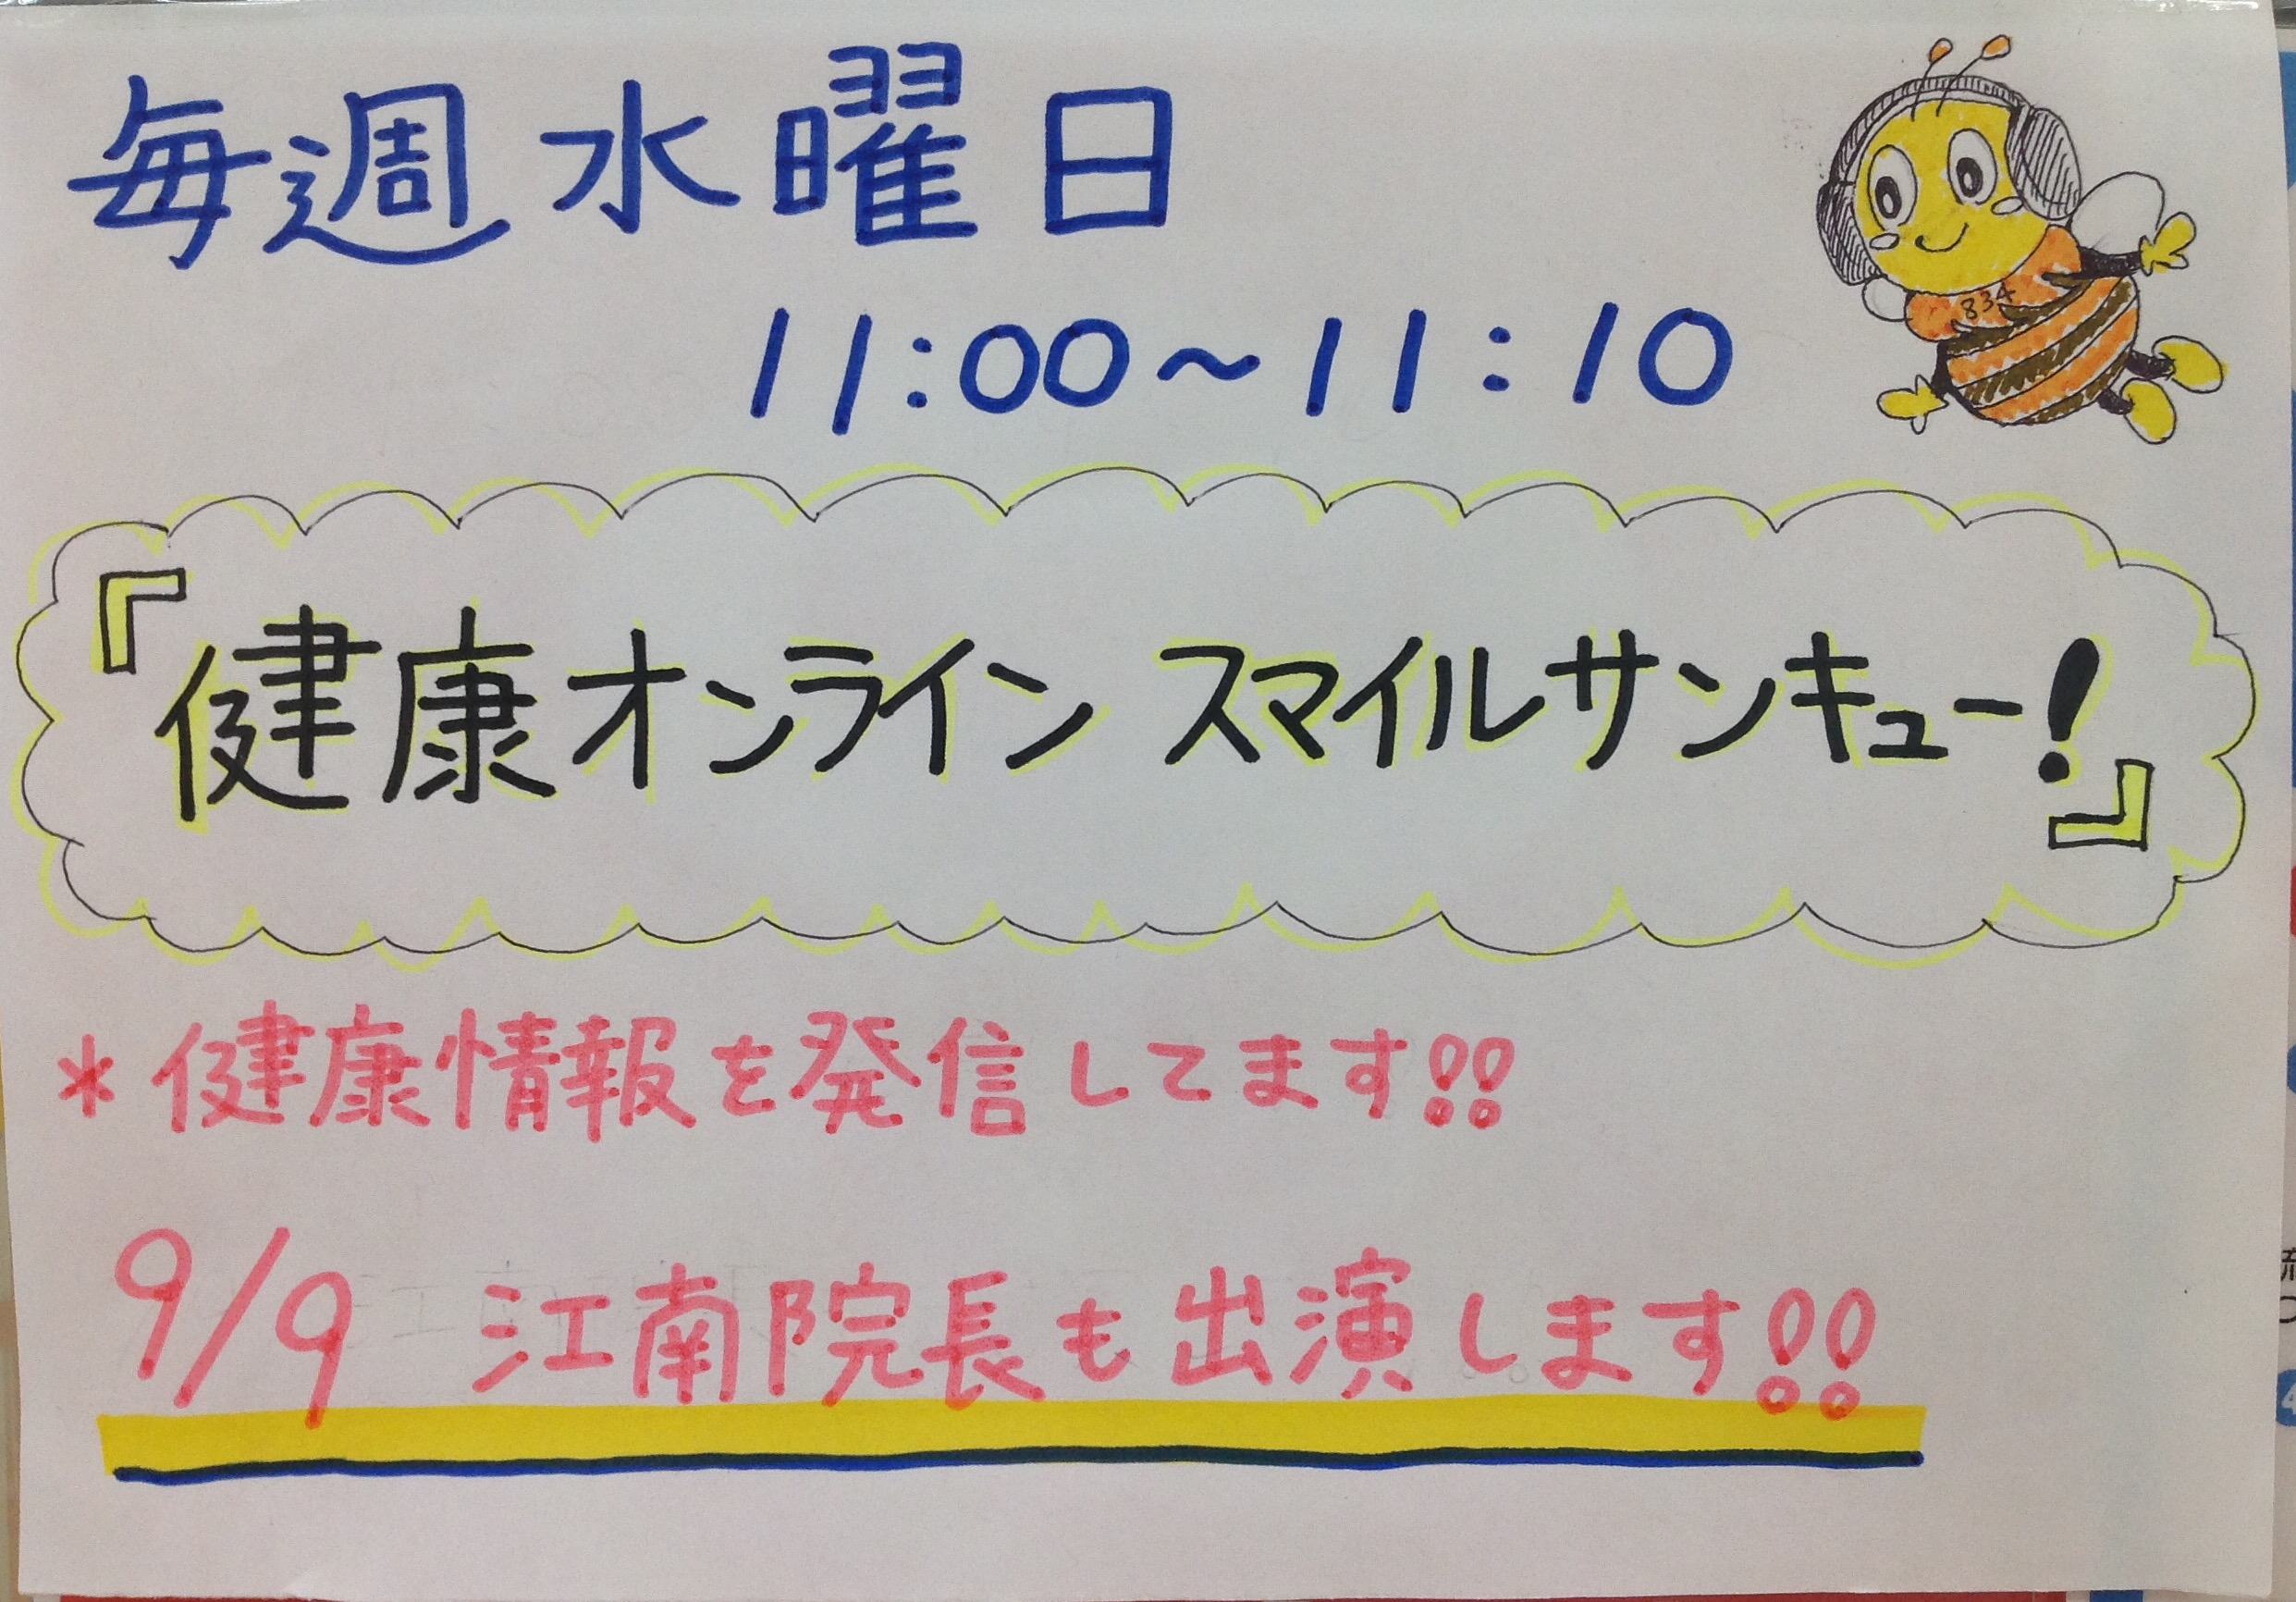 毎週水曜日
11:00～11:10
834
『健康オンライン スマイルサンキュー!』
*健康情報を発信してます!!
9/9 江南院長も出演します!!